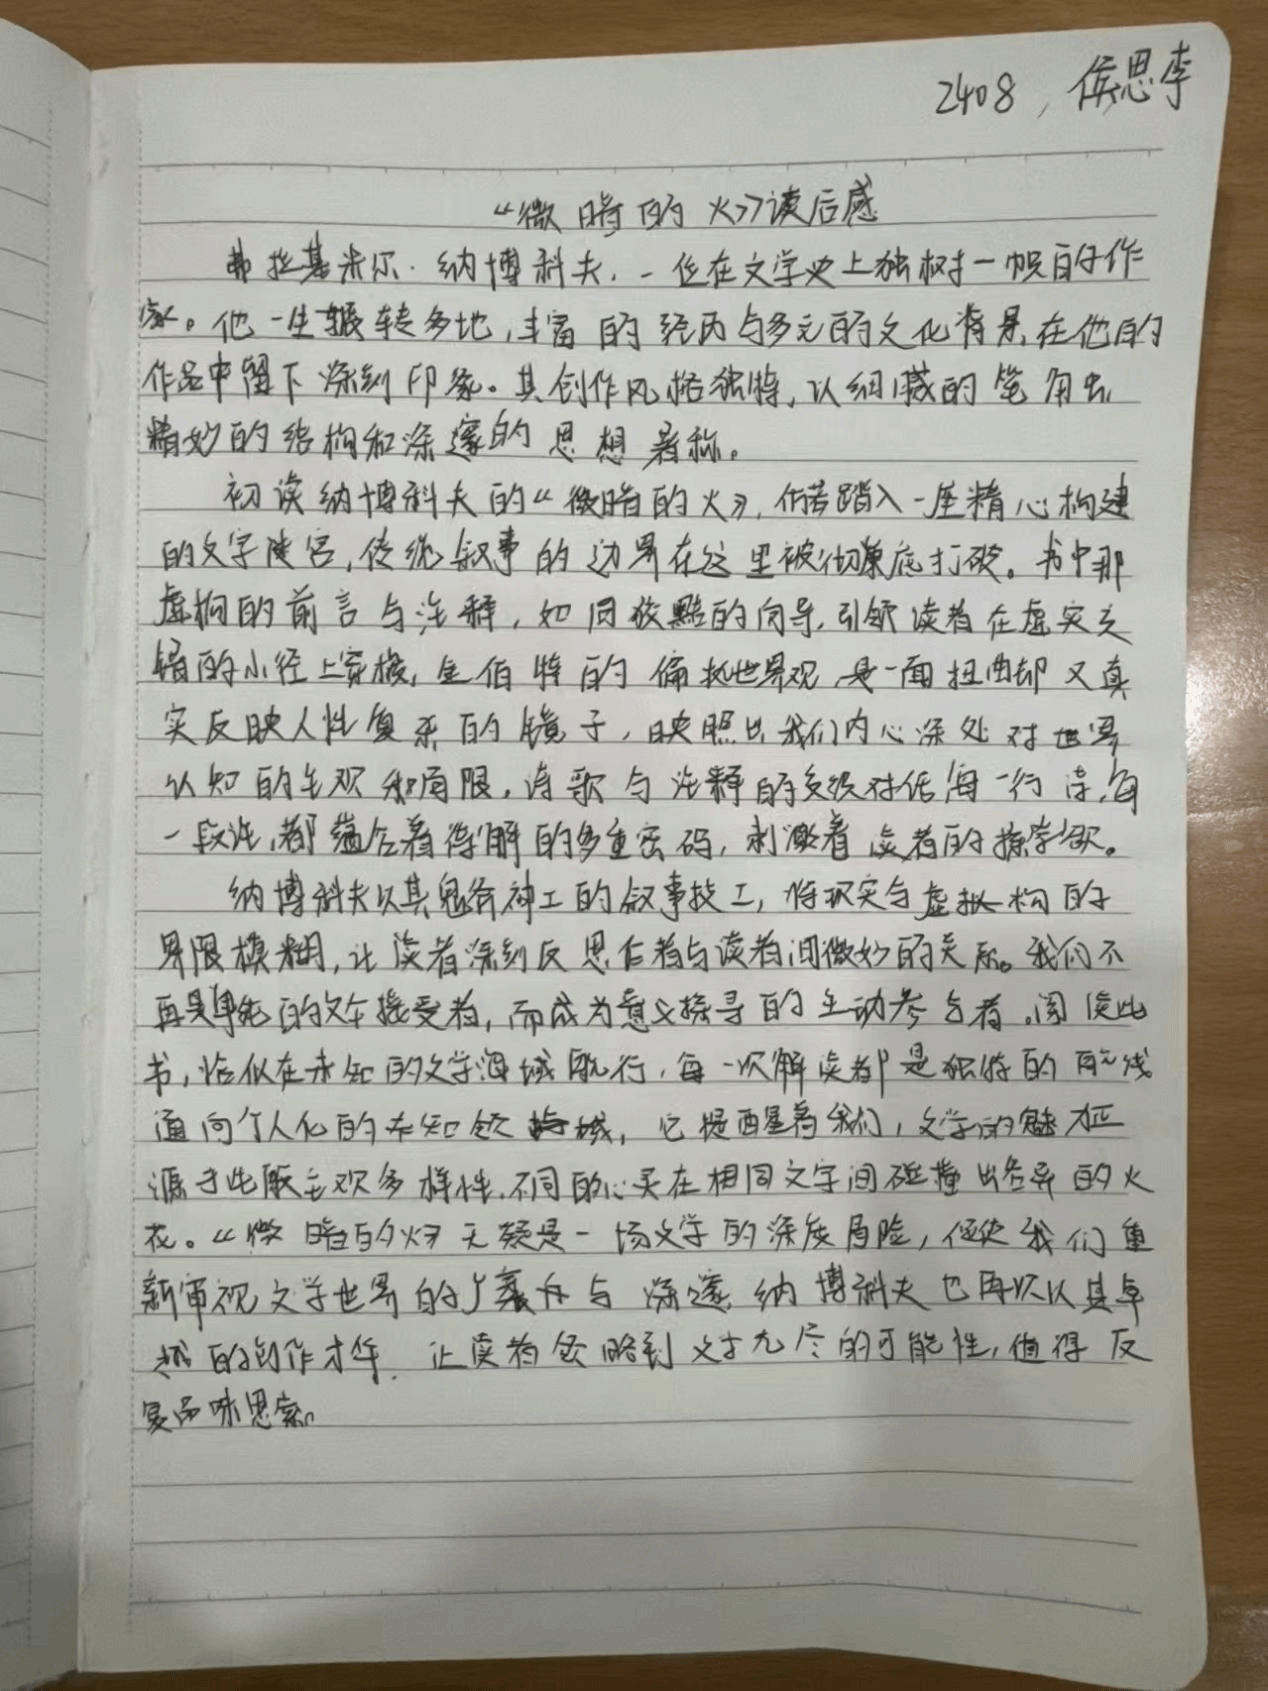 2408，侯思李
《微暗的火》读后感
弗拉基米尔·纳博科夫，一位在文学史上独树一帜的作
家。他一生辗转多地，丰富的经历与多元的文化背景，在他的
作品中留下深刻印象。其创作风格独特，以细腻的笔角虫
精妙的结构和深邃的思想著称。
初读纳博科夫的《微暗的火》，仿若踏入一座精心构建
的文字迷宫，传统叙事的边界在这里被彻底打破。书中那
虚构的前言与注释，如同狡黠的向导，引领读者在虚实交
错的小径上穿梭，金伯特的偏执世界观，是一面扭曲却又真
实反映人性复杂的镜子，映照出我们内心深处对世界
认知的主观和局限，诗歌与注释的交织对话每一行诗，每
一段注，都蕴含着待解的多重密码，刺激着读者的探学欲。
纳博科夫以其鬼斧神工的叙事技工，将现实与虚构的
界限模糊，让读者深刻反思作者与读者间微妙的关系。我们不
再是单纯的文本接受者，而成为意义探寻的主动参与者。阅读此
书，恰似在未知的文学海域航行，每一次解读都是独特的航线
通向个人化的未知领域，它提醒着我们，文学的魅力正
源于此般主观多样性，不同的心灵在相同文字间碰撞出各异的火
花。《微暗的火》无疑是一场文学的深度冒险，促使我们重
新审视文学世界的广袤与深邃，纳博科夫也再次以其卓
越的创作才华，让读者领略到文字无尽的可能性，值得反
复品味思索。